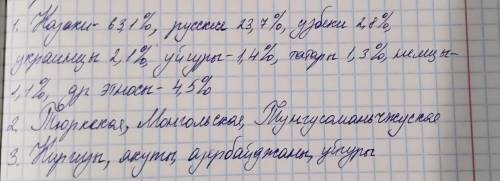 1. Казаки- 63,1%, русские 23,7%, узбеки 2,8%,
украинцы 2,1%, уйгуры- 1,4%, татары 1,3%, немцы-
1,1%, др этносы- 4,5%
2. Тюркская, Монгольская, Тунгусоманьчжуская
3. Киргизы, якуты, азербайджаны, уйгуры